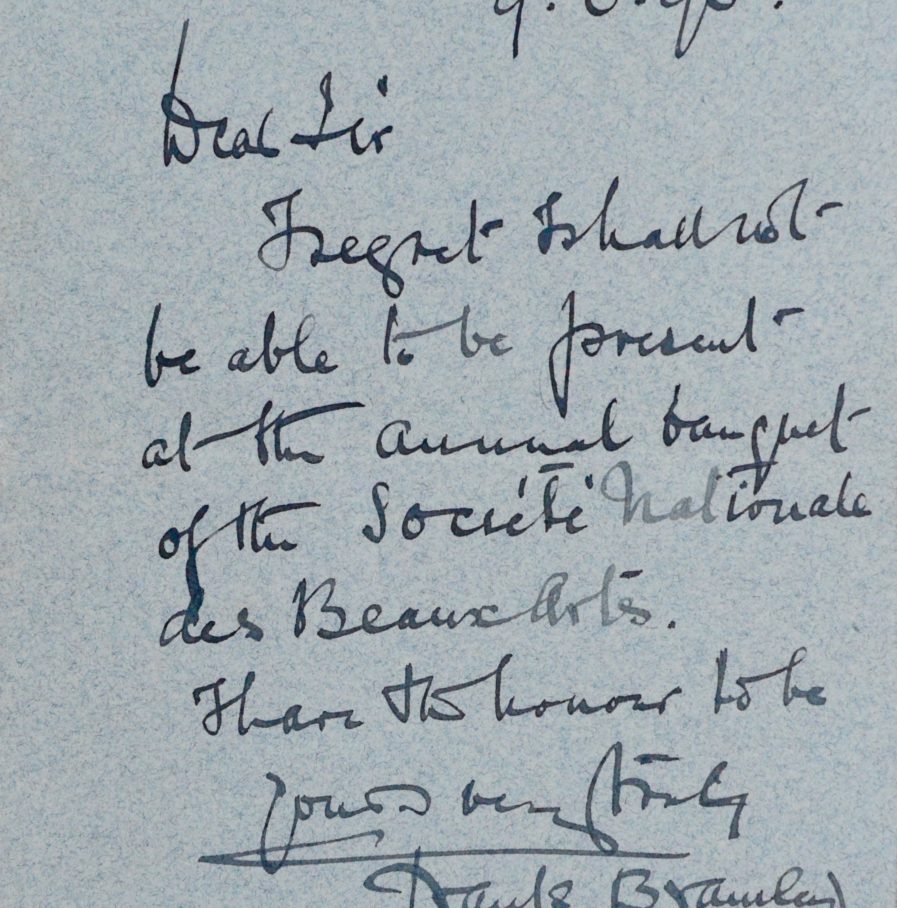 Dear Sir
I regret I shall not
be able to be present
at the annual banquet
of the Société Nationale
des Beaux Arts.
I have the honour to be
yours very truly
Frank Bramley